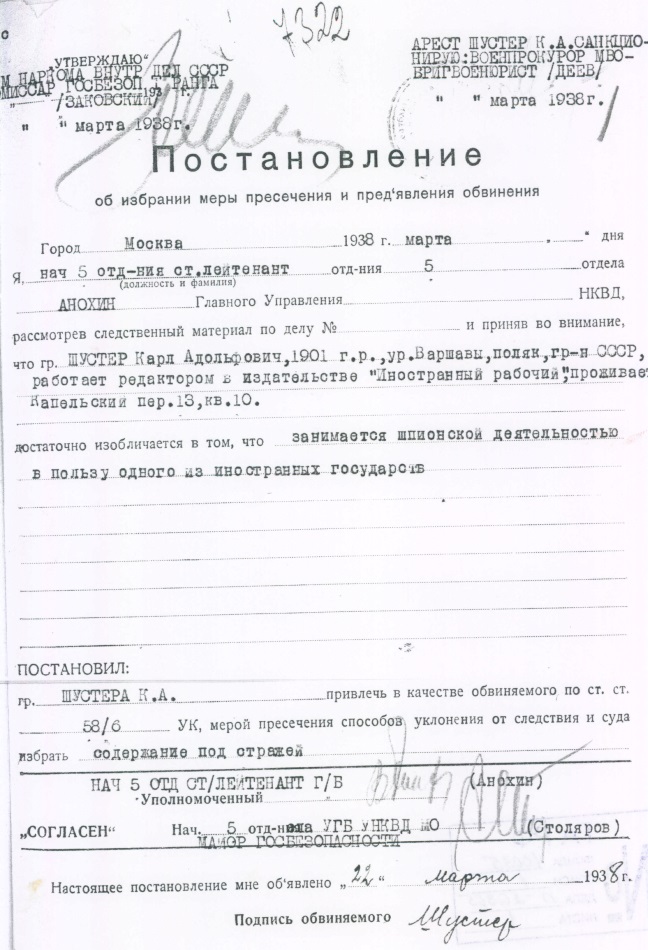 7322
с
„УТВЕРЖДАЮ"
М НАРКОМА ВНУТР ДЕЛ СССР
ОМИССАР ГОСБЕЗОП 1 РАНГА
193 г.
/ЗАКОВСКИЙ/
" " марта 1938г.
АРЕСТ ШУСТЕР К.А.САНКЦИО-
НИРУЮ:ВОЕНПРОКУРОР МВО-
БРИГВОЕНЮРИСТ /ДЕЕВ/
" " марта 1938г.
Постановление
об избрании меры пресечения и пред'явления обвинения
Город Москва 1938 г. марта „ " дня
Я, нач 5 отд-ния ст.лейтенант отд-ния 5 отдела
(должность и фамилия)
АНОХИН Главного Управления НКВД,
рассмотрев следственный материал по делу № и приняв во внимание,
что гр. ШУСТЕР Карл Адольфович,1901 г.р.,ур.Варшавы,поляк,гр-н СССР,
работает редактором в издательстве "Иностранный рабочий",проживает
Капельский пер.13,кв.10.
достаточно изобличается в том, что занимается шпионской деятельностью
в пользу одного из иностранных государств
ПОСТАНОВИЛ:
гр. ШУСТЕРА К.А. привлечь в качестве обвиняемого по ст. ст.
58/6 УК, мерой пресечения способов уклонения от следствия и суда
избрать содержание под стражей
НАЧ 5 ОТД СТ/ЛЕЙТЕНАНТ Г/Б (Анохин)
Уполномоченный
„СОГЛАСЕН" Нач. 5 отд-ела УГБ УНКВД МО (Столяров)
МАЙОР ГОСБЕЗОПАСНОСТИ
Настоящее постановление мне об'явлено „22" марта 1938г.
Подпись обвиняемого Шустер